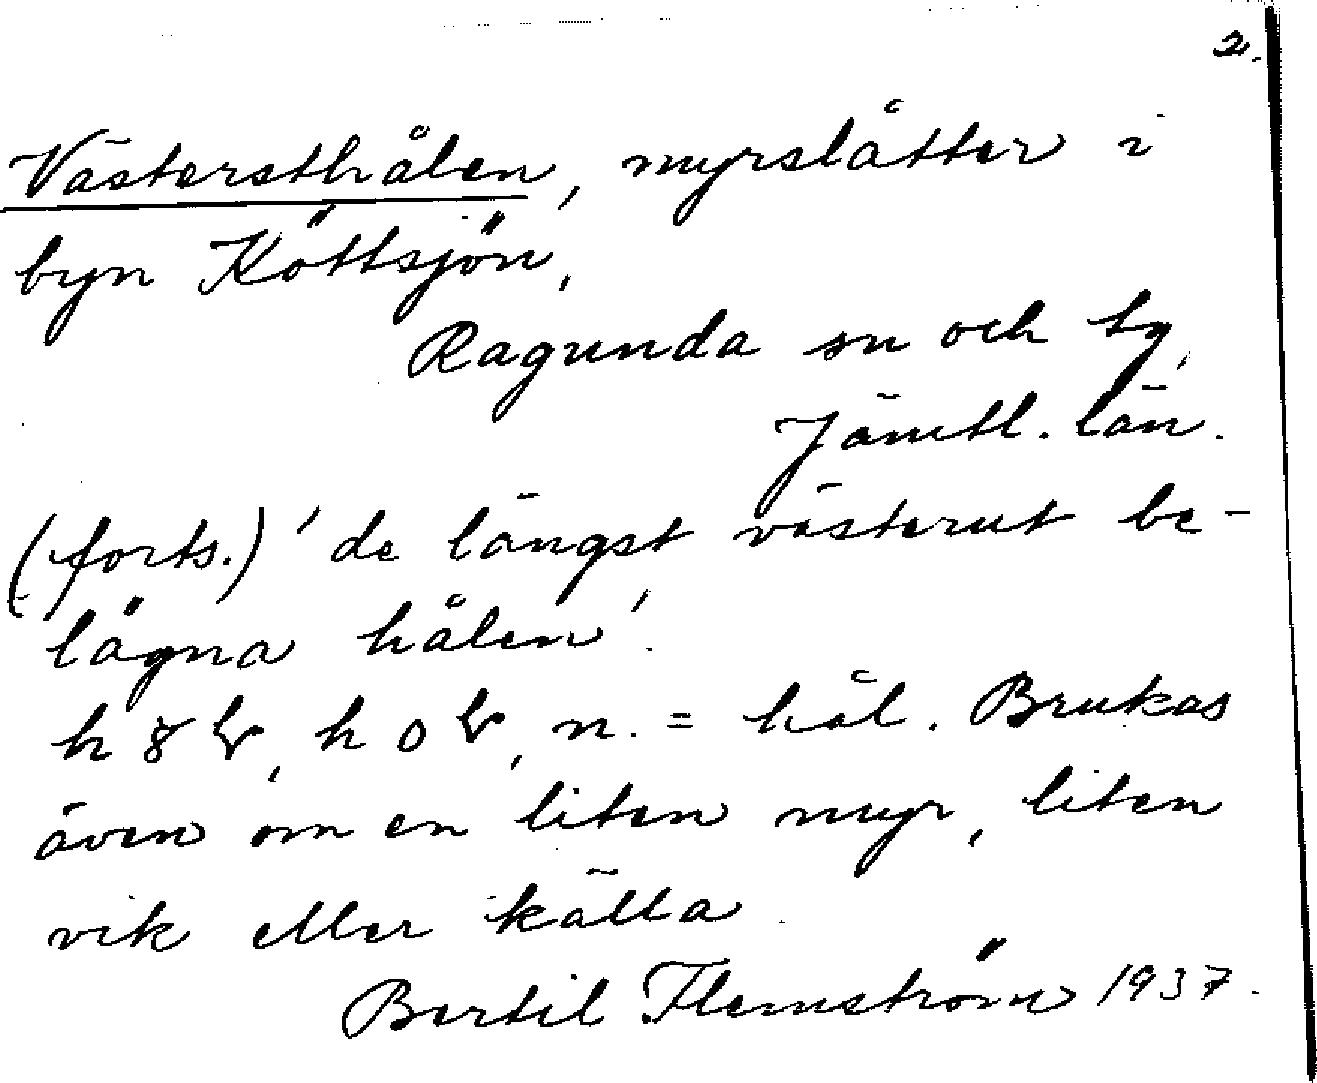 2.
Västersthålen, myrslåtter i
byn Köttsjön,
Ragunda sn och tg,
Jämtl. län.
(forts.) 'de längst västerut be-
lägna hålen'.
h n. = hål. Brukas
även om en liten myr, liten
vik eller källa
Bertil Flemström 1937.